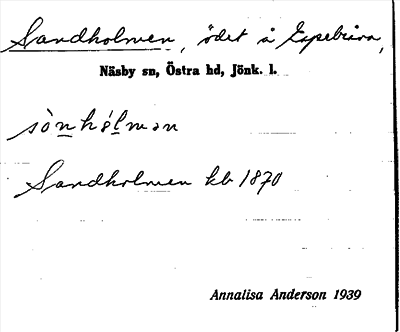 Sandholmen, ödet å Espebråna,
Näsby sn, Östra hd, Jönk. l.
sònhólmən
Sandholmen kb 1870
Annalisa Anderson 1939